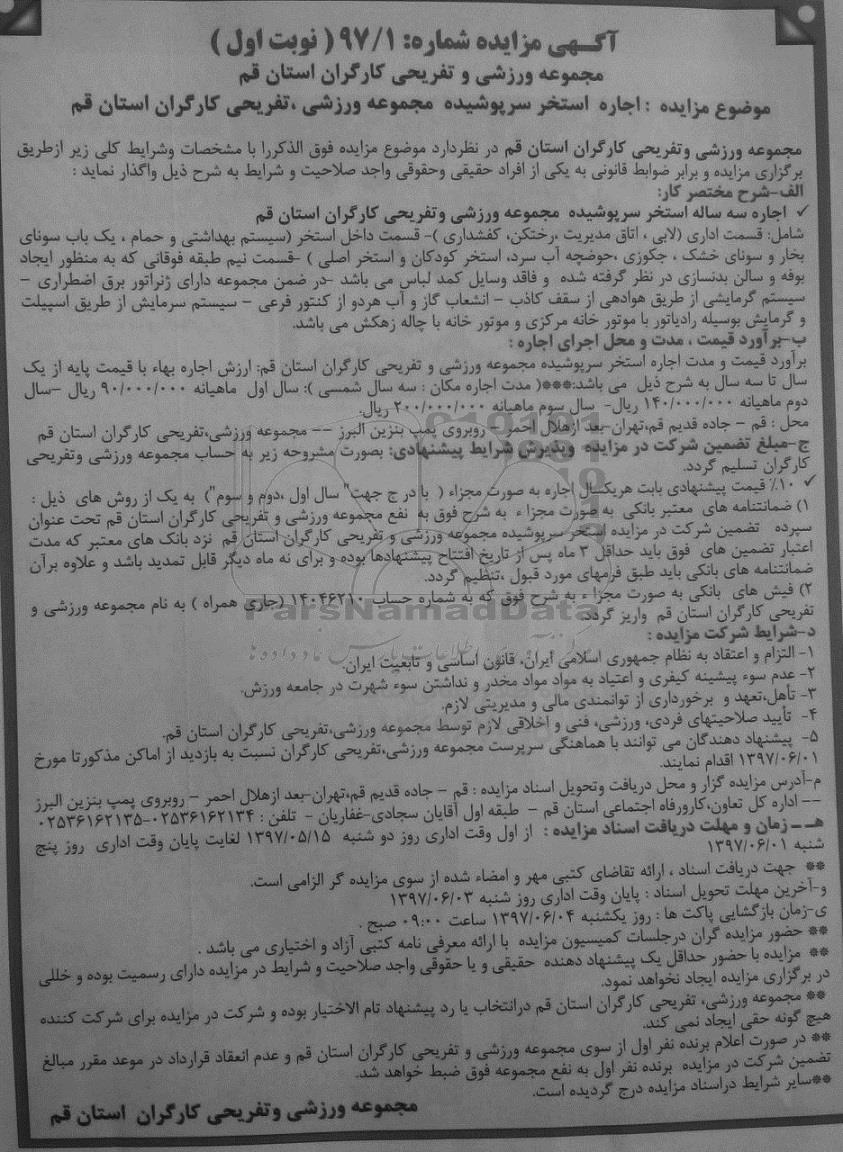 آگـهی مزایده شماره: ۹۷/۱ ( نوبت اول )
مجموعه ورزشی و تفریحی کارگران استان قم
موضوع مزایده : اجاره استخر سرپوشیده مجموعه ورزشی ،تفریحی کارگران استان قم
مجموعه ورزشی وتفریحی کارگران استان قم در نظردارد موضوع مزایده فوق الذکررا با مشخصات وشرایط کلی زیر ازطریق
برگزاری مزایده و برابر ضوابط قانونی به یکی از افراد حقیقی وحقوقی واجد صلاحیت و شرایط به شرح ذیل واگذار نماید :
الف-شرح مختصر کار:
✓ اجاره سه ساله استخر سرپوشیده مجموعه ورزشی وتفریحی کارگران استان قم
شامل: قسمت اداری (لابی ، اتاق مدیریت ،رختکن، کفشداری )- قسمت داخل استخر (سیستم بهداشتی و حمام ، یک باب سونای
بخار و سونای خشک ، جکوزی ،حوضچه آب سرد، استخر کودکان و استخر اصلی ) -قسمت نیم طبقه فوقانی که به منظور ایجاد
بوفه و سالن بدنسازی در نظر گرفته شده و فاقد وسایل کمد لباس می باشد -در ضمن مجموعه دارای ژنراتور برق اضطراری -
سیستم گرمایشی از طریق هوادهی از سقف کاذب - انشعاب گاز و آب هردو از کنتور فرعی - سیستم سرمایش از طریق اسپیلت
و گرمایش بوسیله رادیاتور با موتور خانه مرکزی و موتور خانه با چاله زهکش می باشد.
ب-برآورد قیمت ، مدت و محل اجرای اجاره :
برآورد قیمت و مدت اجاره استخر سرپوشیده مجموعه ورزشی و تفریحی کارگران استان قم: ارزش اجاره بهاء با قیمت پایه از یک
سال تا سه سال به شرح ذیل می باشد:***( مدت اجاره مکان : سه سال شمسی ): سال اول ماهیانه ۹۰/۰۰۰/۰۰۰ ریال -سال
دوم ماهیانه ۱۴۰/۰۰۰/۰۰۰ ریال- سال سوم ماهیانه ۲۰۰/۰۰۰/۰۰۰ ریال.
محل : قم - جاده قدیم قم،تهران-بعد ازهلال احمر - روبروی پمپ بنزین البرز -- مجموعه ورزشی،تفریحی کارگران استان قم
ج-مبلغ تضمین شرکت در مزایده وپذیرش شرایط پیشنهادی: بصورت مشروحه زیر به حساب مجموعه ورزشی وتفریحی
کارگران تسلیم گردد.
✓ ۱۰٪ قیمت پیشنهادی بابت هریکسال اجاره به صورت مجزاء ( با در ج جهت" سال اول ،دوم و سوم") به یک از روش های ذیل :
۱) ضمانتنامه های معتبر بانکی به صورت مجزا ء به شرح فوق به نفع مجموعه ورزشی و تفریحی کارگران استان قم تحت عنوان
سپرده تضمین شرکت در مزایده استخر سرپوشیده مجموعه ورزشی و تفریحی کارگران استان قم نزد بانک های معتبر که مدت
اعتبار تضمین های فوق باید حداقل ۳ ماه پس از تاریخ افتتاح پیشنهادها بوده و برای نه ماه دیگر قابل تمدید باشد و علاوه برآن
ضمانتنامه های بانکی باید طبق فرمهای مورد قبول ،تنظیم گردد.
۲) فیش های بانکی به صورت مجزا ء به شرح فوق که به شماره حساب ۱۴۰۴۶۲۱۰ (جاری همراه ) به نام مجموعه ورزشی و
تفریحی کارگران استان قم واریز گردد.
ParsNamadData
د-شرایط شرکت مزایده :
۱- التزام و اعتقاد به نظام جمهوری اسلامی ایران، قانون اساسی و تابعیت ایران.
۲- عدم سوء پیشینه کیفری و اعتیاد به مواد مواد مخدر و نداشتن سوء شهرت در جامعه ورزش.
۳- تأهل،تعهد و برخورداری از توانمندی مالی و مدیریتی لازم.
۴- تأیید صلاحیتهای فردی، ورزشی، فنی و اخلاقی لازم توسط مجموعه ورزشی،تفریحی کارگران استان قم.
۵- پیشنهاد دهندگان می توانند با هماهنگی سرپرست مجموعه ورزشی،تفریحی کارگران نسبت به بازدید از اماکن مذکورتا مورخ
۱۳۹۷/۰۶/۰۱ اقدام نمایند.
م-آدرس مزایده گزار و محل دریافت وتحویل اسناد مزایده : قم - جاده قدیم قم،تهران-بعد ازهلال احمر - روبروی پمپ بنزین البرز
-- اداره کل تعاون،کارورفاه اجتماعی استان قم - طبقه اول آقایان سجادی-غفاریان - تلفن : ۰۲۵۳۶۱۶۲۱۳۴-۰۲۵۳۶۱۶۲۱۳۵
هـ ـ زمان و مهلت دریافت اسناد مزایده : از اول وقت اداری روز دو شنبه ۱۳۹۷/۰۵/۱۵ لغایت پایان وقت اداری روز پنج
شنبه ۱۳۹۷/۰۶/۰۱
** جهت دریافت اسناد ، ارائه تقاضای کتبی مهر و امضاء شده از سوی مزایده گر الزامی است.
و-آخرین مهلت تحویل اسناد : پایان وقت اداری روز شنبه ۱۳۹۷/۰۶/۰۳
ی-زمان بازگشایی پاکت ها : روز یکشنبه ۱۳۹۷/۰۶/۰۴ ساعت ۰۹:۰۰ صبح .
** حضور مزایده گران درجلسات کمیسیون مزایده با ارائه معرفی نامه کتبی آزاد و اختیاری می باشد .
** مزایده با حضور حداقل یک پیشنهاد دهنده حقیقی و یا حقوقی واجد صلاحیت و شرایط در مزایده دارای رسمیت بوده و خللی
در برگزاری مزایده ایجاد نخواهد نمود.
** مجموعه ورزشی، تفریحی کارگران استان قم درانتخاب یا رد پیشنهاد تام الاختیار بوده و شرکت در مزایده برای شرکت کننده
هیچ گونه حقی ایجاد نمی کند.
** در صورت اعلام برنده نفر اول از سوی مجموعه ورزشی و تفریحی کارگران استان قم و عدم انعقاد قرارداد در موعد مقرر مبالغ
تضمین شرکت در مزایده برنده نفر اول به نفع مجموعه فوق ضبط خواهد شد.
**سایر شرایط دراسناد مزایده درج گردیده است.
مجموعه ورزشی وتفریحی کارگران استان قم